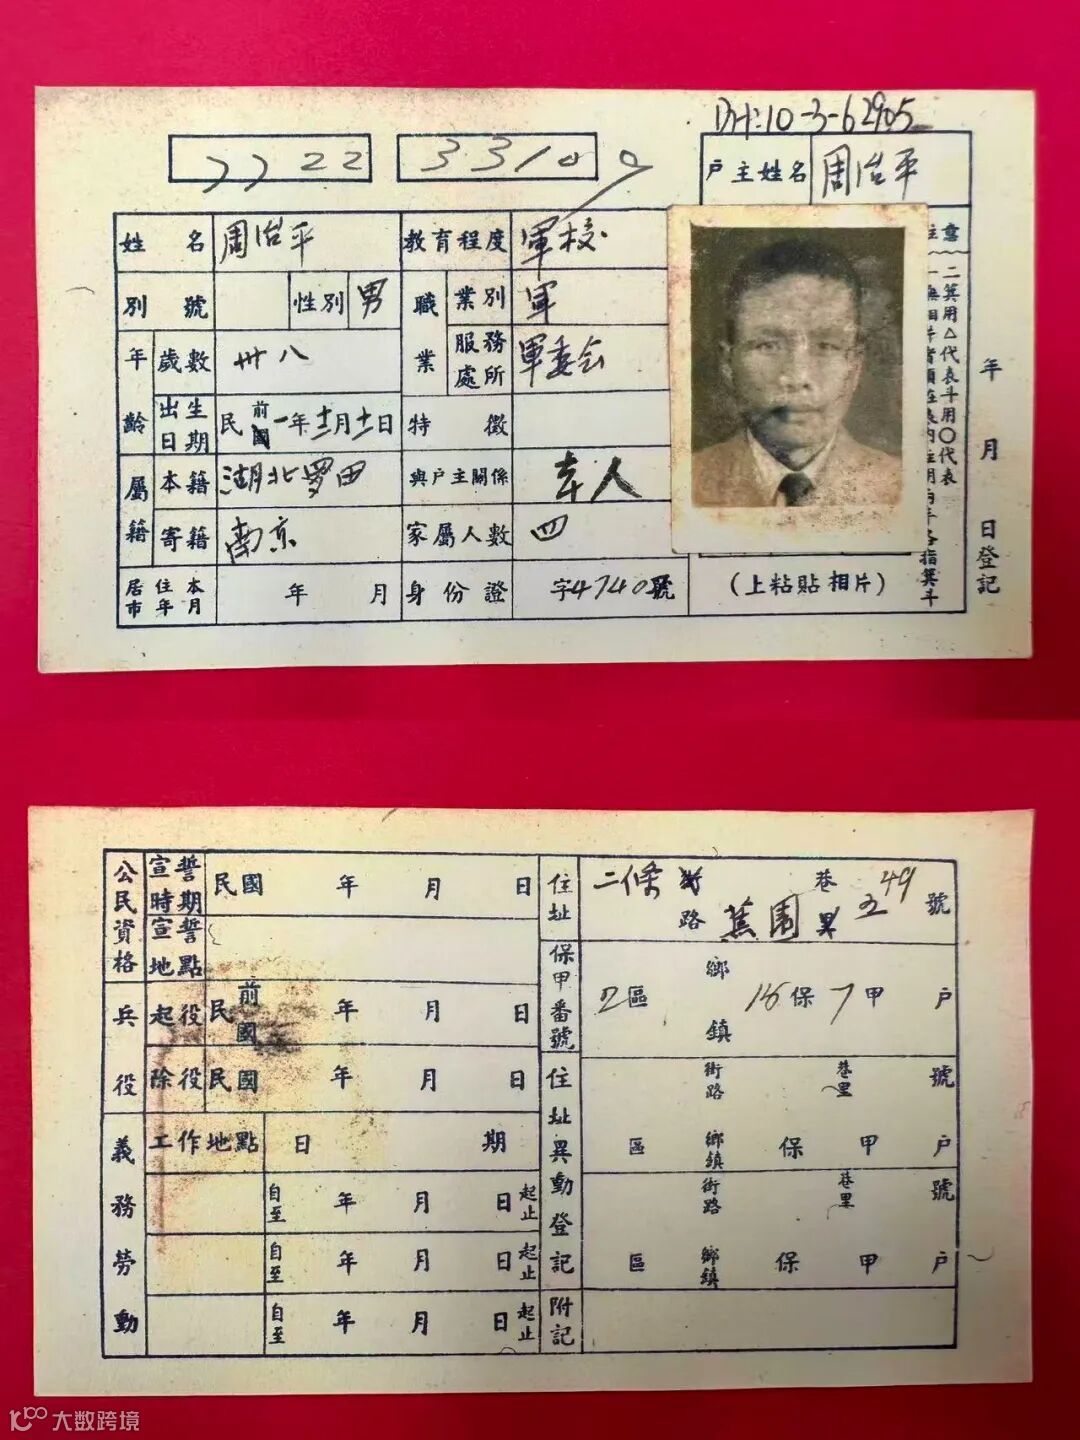 10-3-62905
7722 33100
戶主姓名 周治平
姓名 周治平 教育程度 軍校
別號 性別 男 職業 業別 軍
年齡 歲數 卅八 服務處所 軍委会
出生日期 民國前一年十一月十一日 特徵
屬籍 本籍 湖北罗田 與戶主關係 本人
寄籍 南京 家屬人數 四
居住本市年月 年 月 身份證 字4740號 (上粘貼相片)
注意
二箕用△代表斗用○代表
年 月 日登記
公民資格 宣誓時期 民國 年 月 日
宣誓地點
兵役 起役 民國前 年 月 日
除役 民國 年 月 日
義務勞動 工作地點 日期
自至 年 月 日 起止
自至 年 月 日 起止
自至 年 月 日 起止
住址 二條 巷 49 號
路 蕉園
保甲番號 2區 鄉鎮 16保 7甲 戶
住址異動登記 街路 巷里 號
區 鄉鎮 保 甲 戶
街路 巷里 號
區 鄉鎮 保 甲 戶
附記
大数跨境